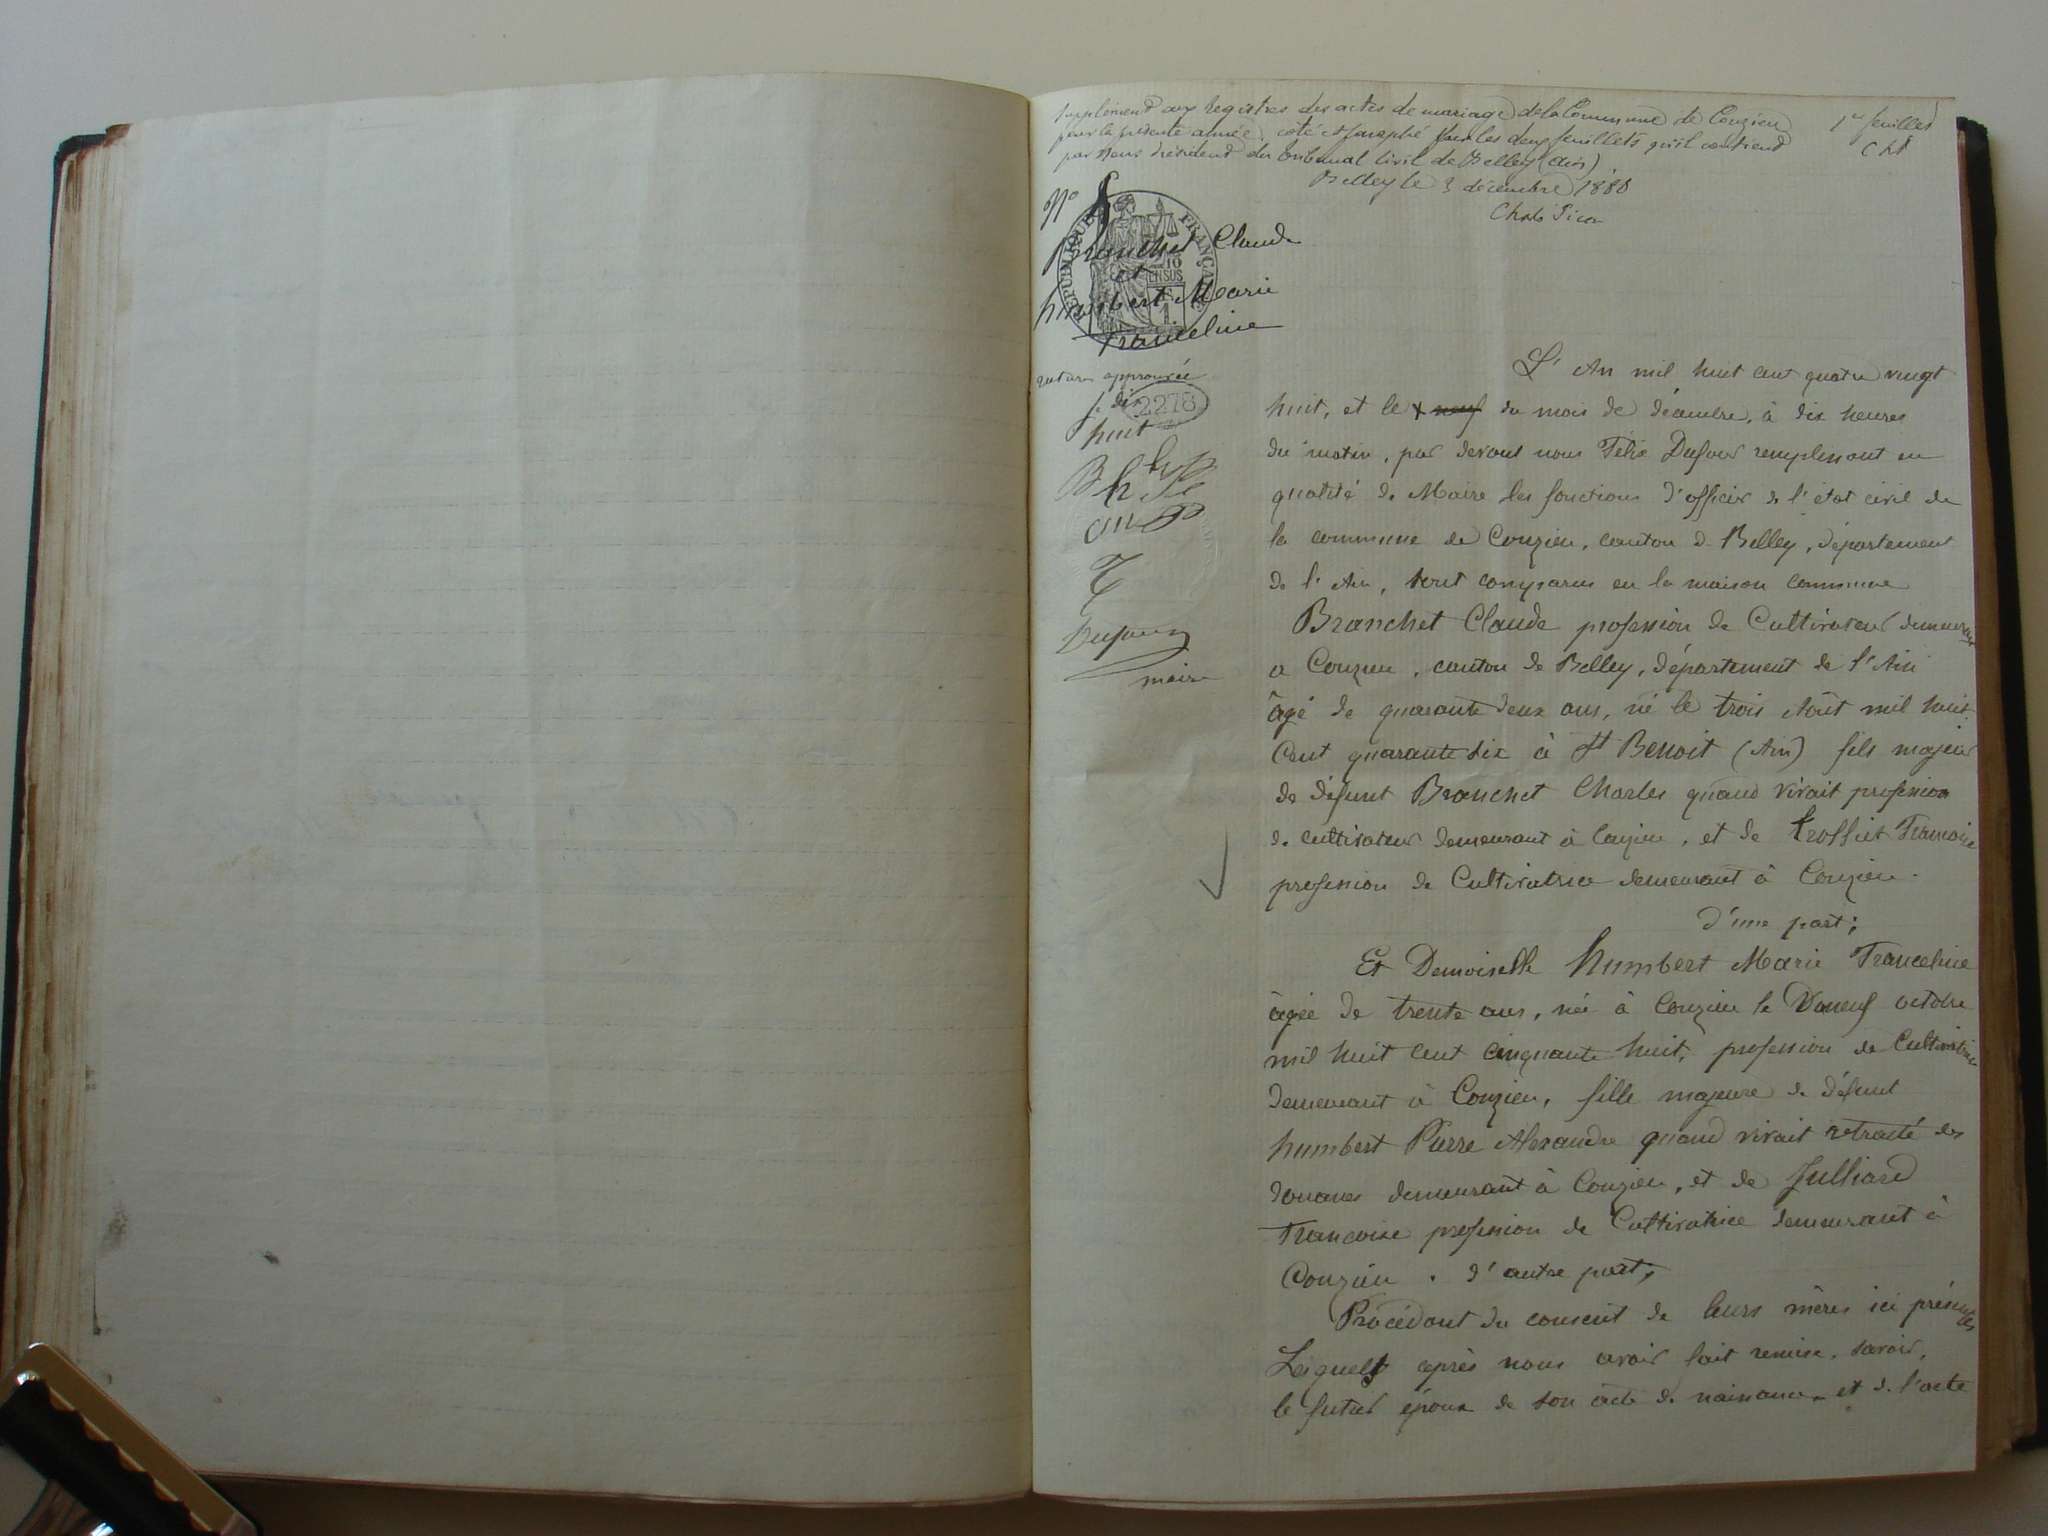 Supplément aux registres des actes de mariage de la Commune de Conzieu
pour la présente année, coté et paraphé sur les deux feuillets qu'il contient
par nous Président du tribunal Civil de Belley (Ain)
Belley le 3 décembre 1888
1er feuillet
N° 8
RÉPUBLIQUE FRANÇAISE
Branchet Claude
et
humbert Marie
Franceline
rature approuvée
dix
2278
huit
Dufour
maire
L'An mil huit cent quatre vingt
huit, et le x neuf du mois de décembre, à dix heures
du matin, par devant nous Félix Dufour remplissant en
qualité de Maire les fonctions d'officier de l'état civil de
la commune de Conzieu, canton de Belley, département
de l'Ain, sont comparus en la maison commune
Branchet Claude profession de Cultivateur demeurant
a Conzieu, canton de Belley, département de l'Ain
âgé de quarante deux ans, né le trois Aôut mil huit
Cent quarante six à St Benoit (Ain) fils majeur
de défunt Branchet Charles quand vivait profession
de cultivateur demeurant à Conzieu, et de Françoise
profession de Cultivatrice demeurant à Conzieu.
d'une part;
Et Demoiselle humbert Marie Franceline
âgée de trente ans, née à Conzieu le octobre
mil huit cent cinquante huit, profession de Cultivatrice
demeurant à Conzieu, fille majeure de défunt
humbert Pierre Alexandre quand vivait retraité des
douanes demeurant à Conzieu, et de Julliard
Francoise profession de Cultivatrice demeurant à
Conzieu. d'autre part,
Procédant du consent de leurs mères ici présentes
Lesquels après nous avoir fait remise, savoir,
le futur époux de son acte de naissance et de l'acte